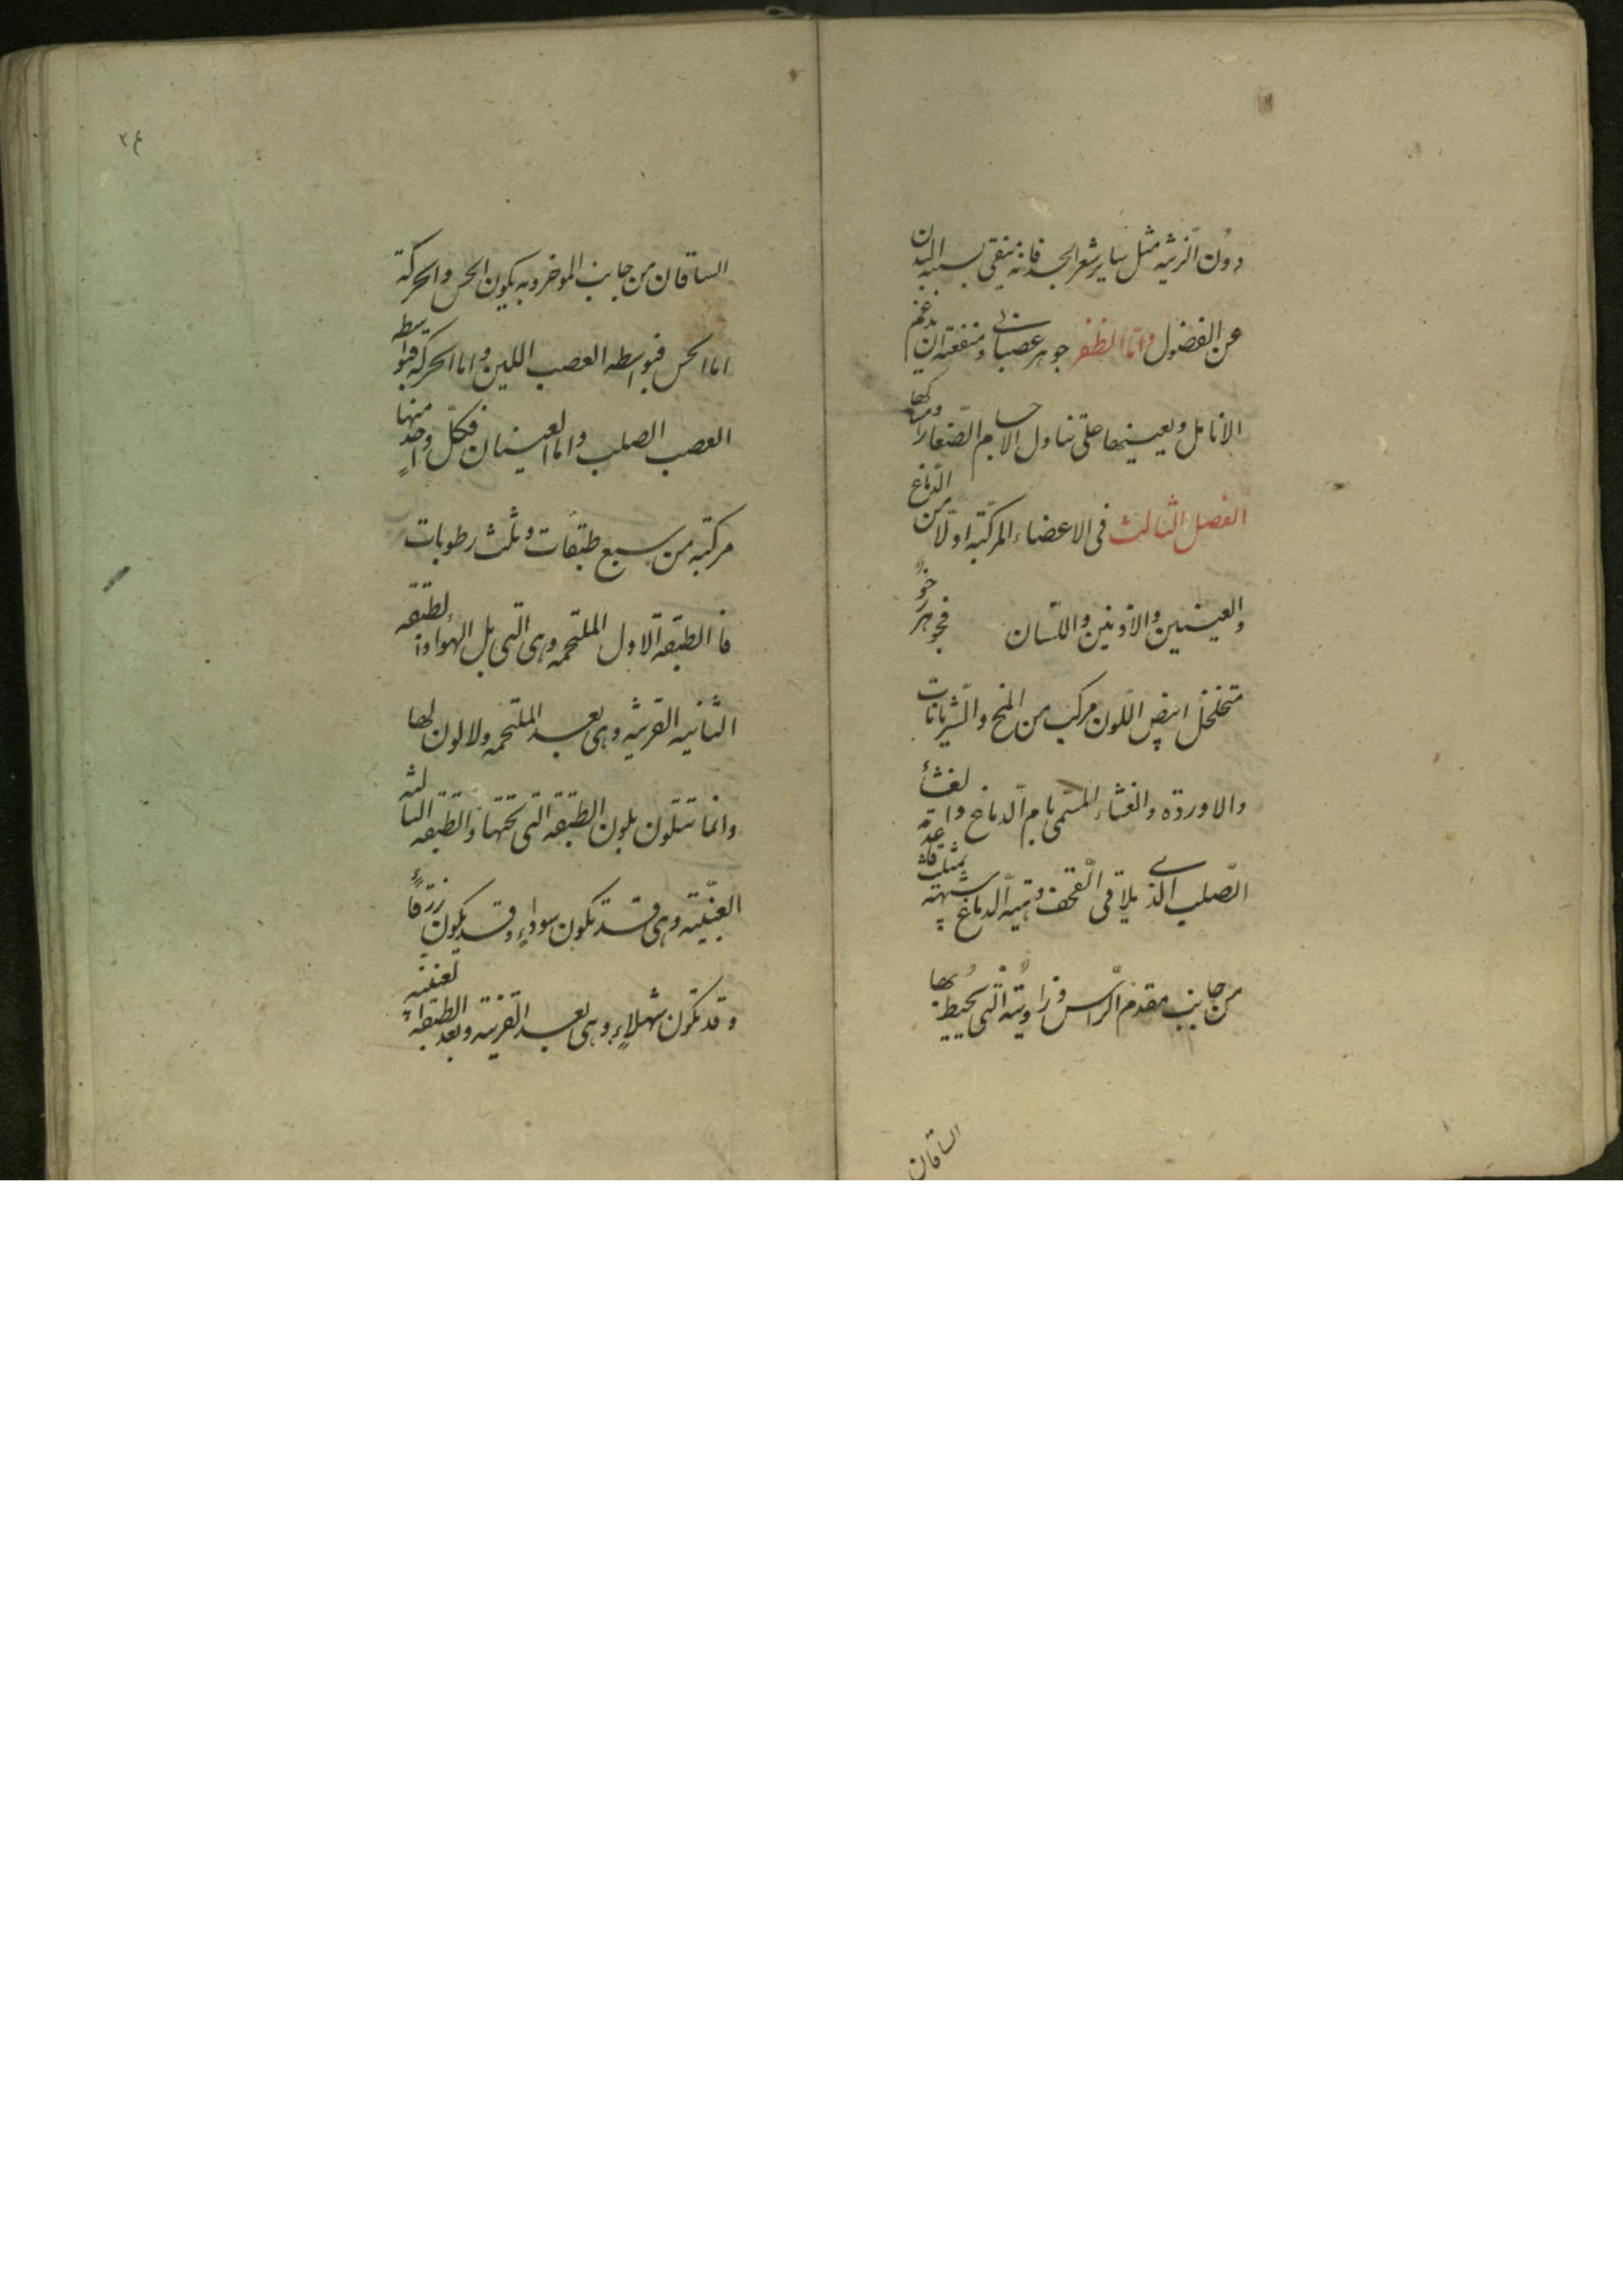 دون الزينة مثل ساير شعر الجسد فانه ينقى بسببه البدن
عن الفضول واما الظفر جوهر عصبانى ومنفعته ان يدعم
الانامل ويعينها على تناول الاجسام الصغار وامساكها
الفصل الثالث فى الاعضاء المركبة اولا من الدماغ
والعينين والاذنين واللسان فجوهر رخو
متخلخل ابيض اللون مركب من المخ والشريانات
والاوردة والغشاء المسمى بام الدماغ والغشاء
الصلب الذى يلاقى القحف وهيئة الدماغ شبيهة بمثلث قاعدته
من جانب مقدم الراس وزاويته التى يحيط بها
الساقان
٢٤
الساقان من جانب الموخر وبه يكون الحس والحركة
اما الحس فبواسطه العصب اللين واما الحركه فبواسطه
العصب الصلب واما العينان فكل واحد منها
مركبه من سبع طبقات وثلث رطوبات
فا الطبقة الاول الملتحمه وهى التى يلى الهواء والطبقه
الثانيه القرنيه وهى بعد الملتحمه ولا لون لها
وانما تتلون بلون الطبقه التى تحتها والطبقه الثالثه
العنبيته وهى قد تكون سوداء وقد يكون زرقاء
وقد تكون شهلاء وهى بعد القرنيه وبعد الطبقه العنبيه